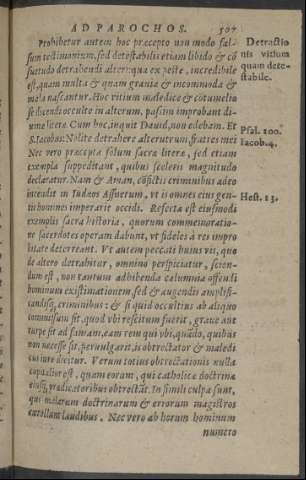 AD PAROCHOS. 507
Prohibetur autem hoc præcepto non modo fal-
sum testimonium, sed detestabilis etiam libido & cõ
suetudo detrahendi alteri: qua ex peste, incredibile
est, quàm multa & quàm grauia & incommoda &
mala nascantur. Hoc vitium maledicè & cõtumelio
sè dicendi occultè in alterum, passim improbant di-
uinæ literæ. Cum hoc, inquit Dauid, non edebam. Et
S. Iacobus: Nolite detrahere alterutrum, fratres mei
Nec verò præcepta solùm sacræ literæ, sed etiam
exempla suppeditant, quibus sceleris magnitudo
declaratur. Nam & Aman, cõfictis criminibus adeo
incendit in Iudæos Assuerum, vt is omnes eius gen-
tis homines imperarit occidi. Referta est eiusmodi
exemplis sacra historia, quorum commemoratio-
ne sacerdotes operam dabunt, vt fideles à rei impro
bitate deterreant. Vt autem peccati huius vis, quo
de altero detrahitur, omnino perspiciatur, scien-
dum est, non tantum adhibenda calumnia offendi
hominum existimationem, sed & augendis amplifi-
candisq́; criminibus: & si quid occultius ab aliquo
commissum sit, quod vbi rescitum fuerit, graue aut
turpe sit ad famam, eam rem qui vbi, quãdo, quibus
non necesse sit, peruulgarit, is obtrectator & maledi
cus iure dicitur. Verùm totius obtrectationis nulla
capitalior est, quàm eorum, qui catholicæ doctrinæ
eiusq́; prædicatoribus obtrectãt. In simili culpa sunt,
qui malarum doctrinarum & errorum magistros
extollunt laudibus. Nec verò ab horum hominum
numero
Detractio
nis vitium
quam dete-
stabile.
Psal. 100.
Iacob. 4.
Hest. 13.